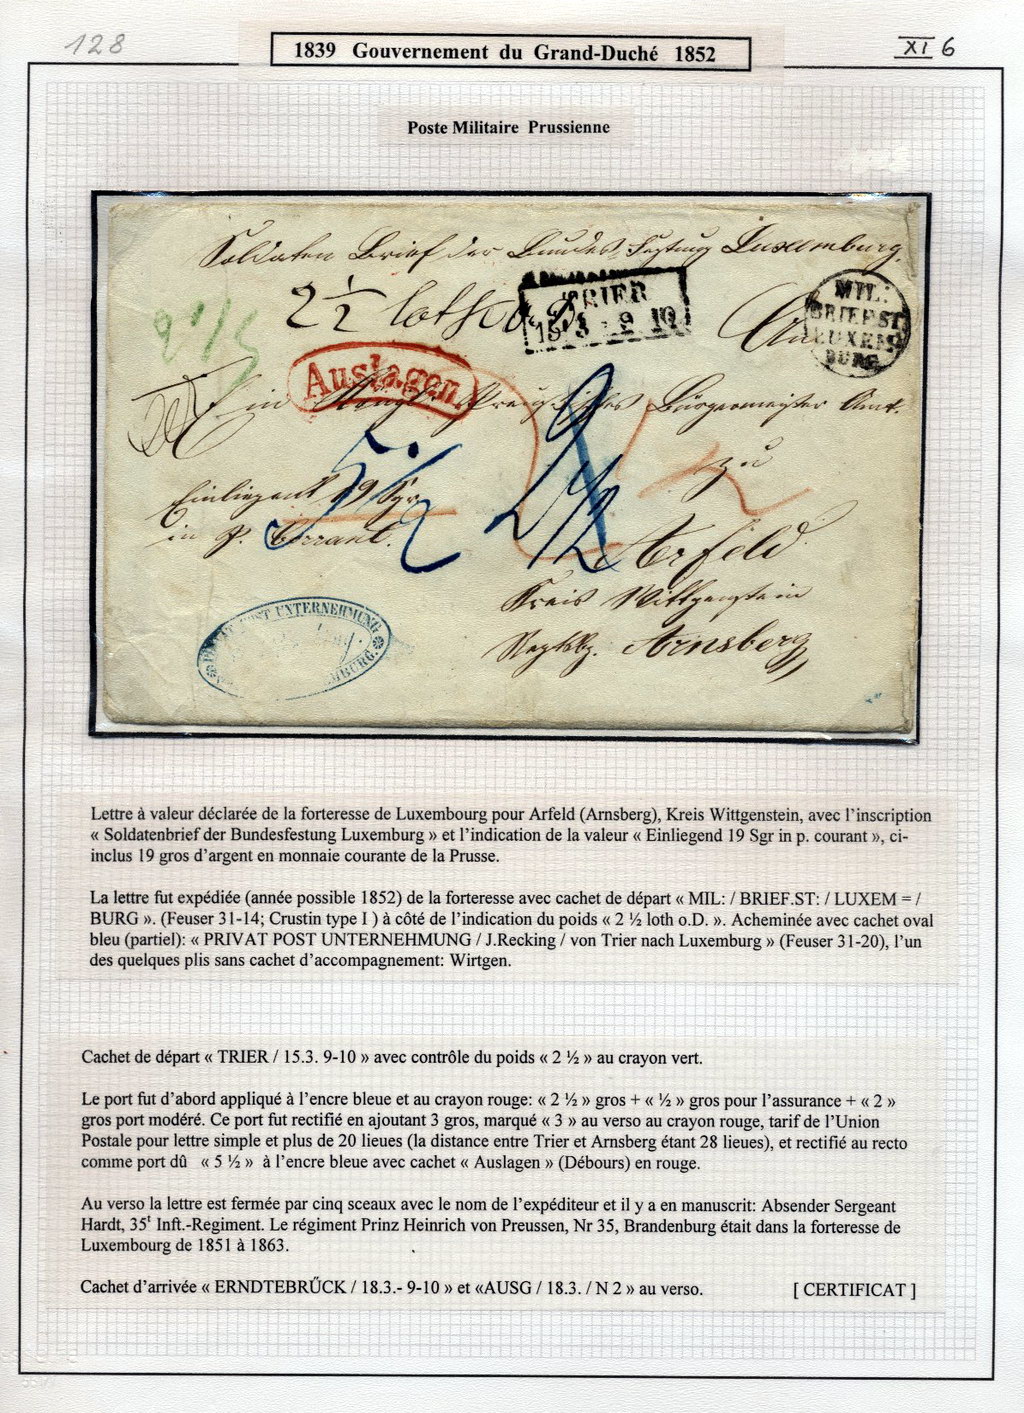 128
1839 Gouvernement du Grand-Duché 1852
XI 6
Poste Militaire Prussienne
Soldaten Brief der Bundes Festung Luxemburg.
2 ½ loth o. D.
TRIER
15 3 9-10
MIL:
BRIEF.ST.
LUXEM=
BURG
2 1/2
Auslagen.
An
ein Preußisches Bürgermeister Amt.
zu
5 ½
2 ½
2
Einliegend 19 Sgr
in P. Courant.
Arfeld
Kreis Wittgenstein
Regbz. Arnsberg
PRIVAT POST UNTERNEHMUNG
MBURG.
Lettre à valeur déclarée de la forteresse de Luxembourg pour Arfeld (Arnsberg), Kreis Wittgenstein, avec l’inscription
« Soldatenbrief der Bundesfestung Luxemburg » et l’indication de la valeur « Einliegend 19 Sgr in p. courant », ci-
inclus 19 gros d’argent en monnaie courante de la Prusse.
La lettre fut expédiée (année possible 1852) de la forteresse avec cachet de départ « MIL: / BRIEF.ST: / LUXEM = /
BURG ». (Feuser 31-14; Crustin type I ) à côté de l’indication du poids « 2 ½ loth o.D. ». Acheminée avec cachet oval
bleu (partiel): « PRIVAT POST UNTERNEHMUNG / J.Recking / von Trier nach Luxemburg » (Feuser 31-20), l’un
des quelques plis sans cachet d’accompagnement: Wirtgen.
Cachet de départ « TRIER / 15.3. 9-10 » avec contrôle du poids « 2 ½ » au crayon vert.
Le port fut d’abord appliqué à l’encre bleue et au crayon rouge: « 2 ½ » gros + « ½ » gros pour l’assurance + « 2 »
gros port modéré. Ce port fut rectifié en ajoutant 3 gros, marqué « 3 » au verso au crayon rouge, tarif de l’Union
Postale pour lettre simple et plus de 20 lieues (la distance entre Trier et Arnsberg étant 28 lieues), et rectifié au recto
comme port dû « 5 ½ » à l’encre bleue avec cachet « Auslagen » (Débours) en rouge.
Au verso la lettre est fermée par cinq sceaux avec le nom de l’expéditeur et il y a en manuscrit: Absender Sergeant
Hardt, 35ᵗ Inft.-Regiment. Le régiment Prinz Heinrich von Preussen, Nr 35, Brandenburg était dans la forteresse de
Luxembourg de 1851 à 1863.
Cachet d’arrivée « ERNDTEBRŰCK / 18.3.- 9-10 » et «AUSG / 18.3. / N 2 » au verso. [ CERTIFICAT ]